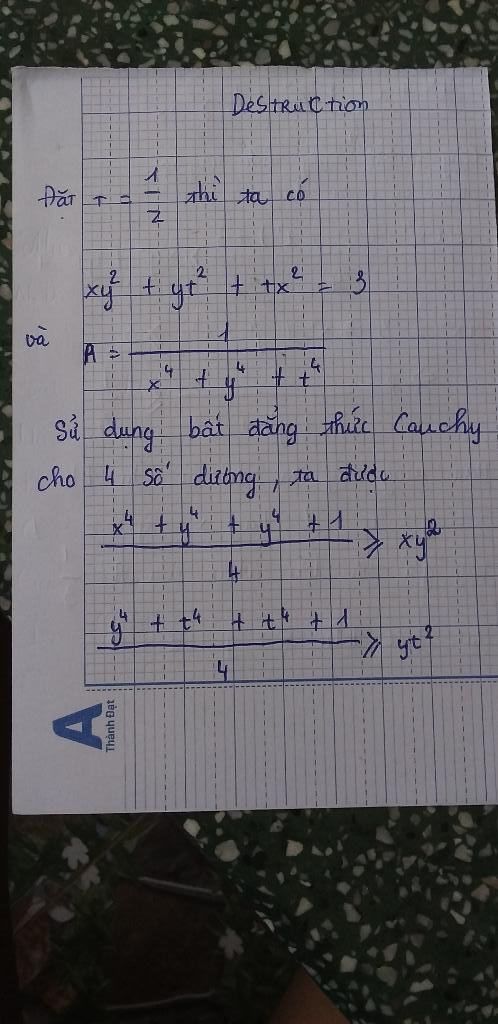 Destruction
Đặt T = 1/z thì ta có
xy² + yt² + tx² = 3
và
A = 1/(x⁴ + y⁴ + t⁴)
Sử dụng bất đẳng thức Cauchy
cho 4 số dương, ta được
(x⁴ + y⁴ + y⁴ + 1)/4 ⩾ xy²
(y⁴ + t⁴ + t⁴ + 1)/4 ⩾ yt²
A
Thành Đạt